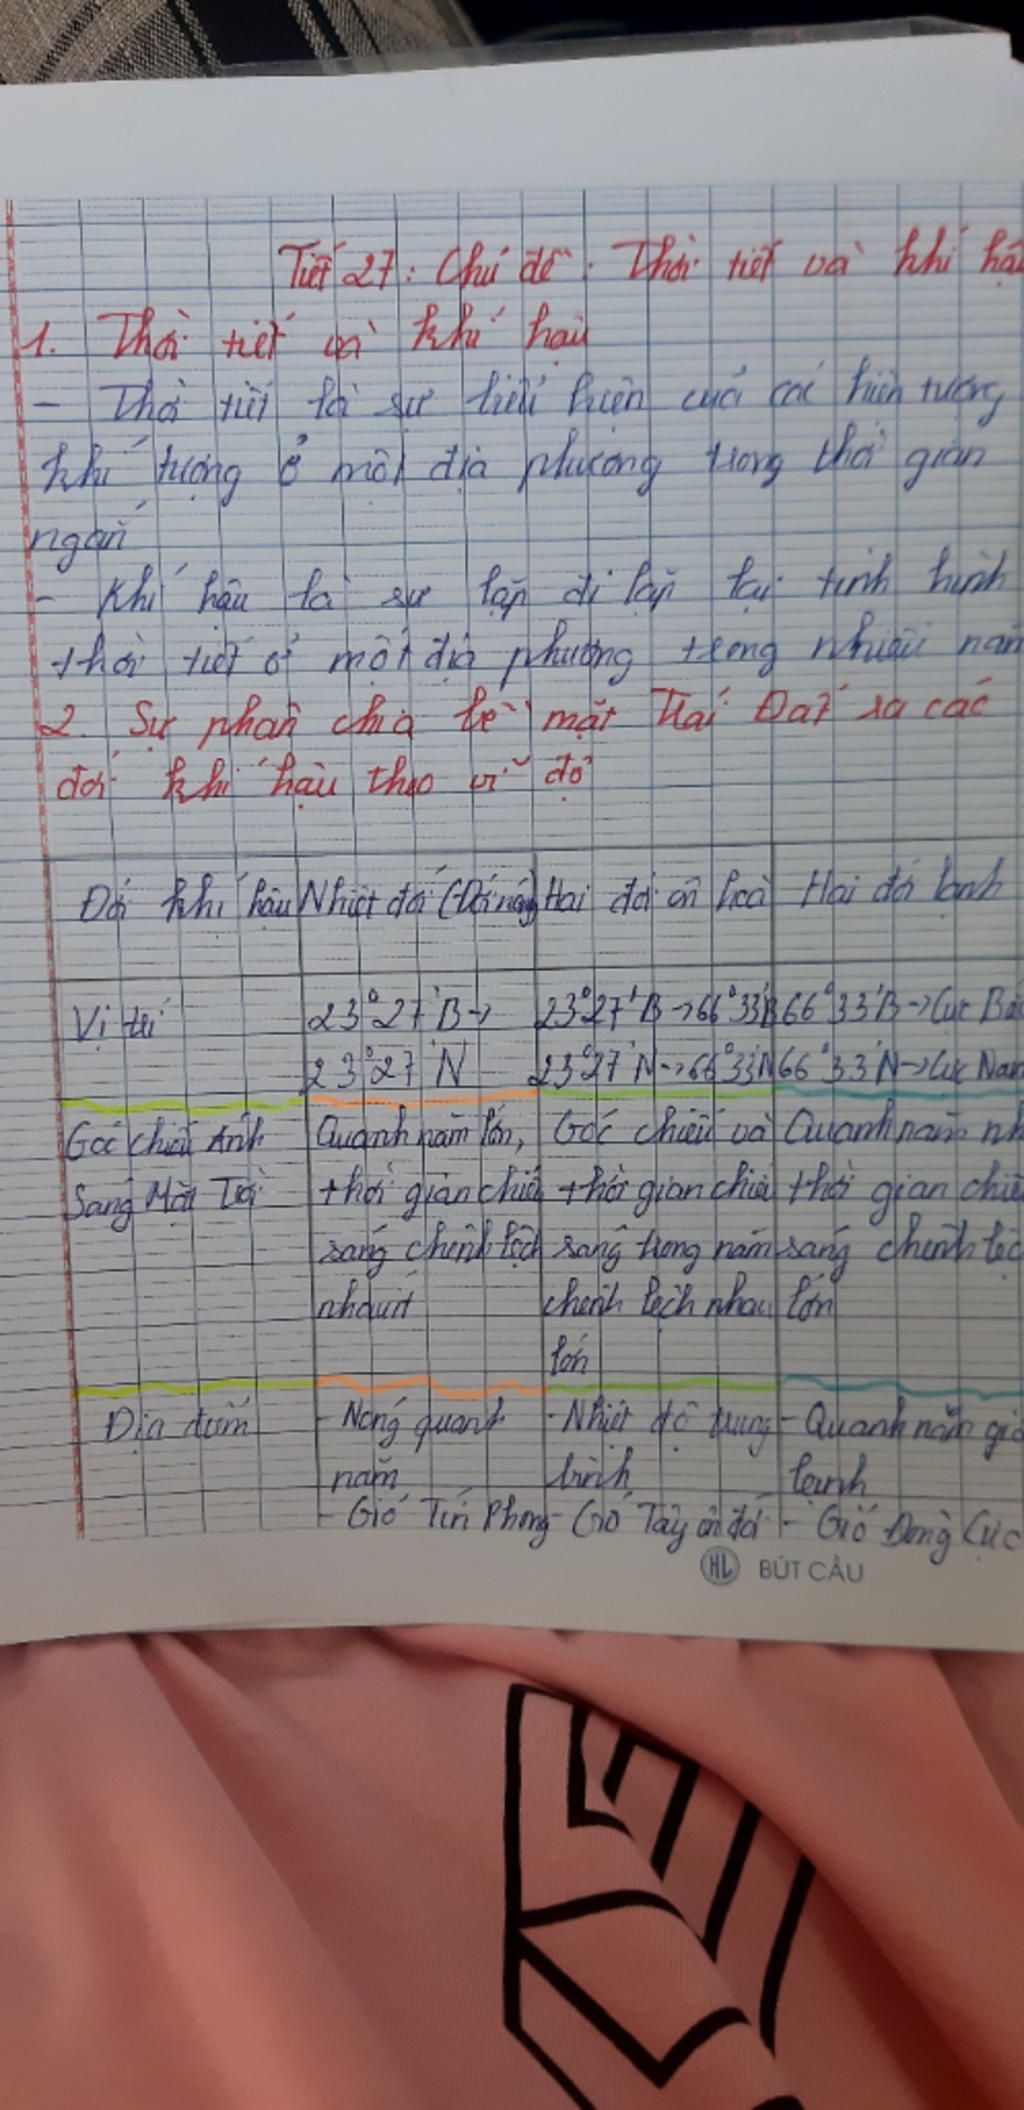 Tiết 27: Chủ đề: Thời tiết và khí hậu
1. Thời tiết và khí hậu
- Thời tiết là sự biểu hiện của các hiện tượng
khí tượng ở một địa phương trong thời gian
ngắn
- Khí hậu là sự lặp đi lặp lại tình hình
thời tiết ở một địa phương trong nhiều năm
2. Sự phân chia bề mặt Trái Đất ra các
đới khí hậu theo vĩ độ
Đới khí hậu Nhiệt đới (Đới nóng) Hai đới ôn hoà Hai đới lạnh
Vị trí 23°27'B-> 23°27'B->66°33'B 66°33'B->Cực Bắc
23°27'N 23°27'N->66°33'N 66°33'N->Cực Nam
Góc chiếu ánh Quanh năm lớn, Góc chiếu và Quanh năm nh
Sáng Mặt Trời thời gian chiếu thời gian chiếu thời gian chiế
sáng chênh lệch sáng trong năm sáng chênh lệc
nhau ít chênh lệch nhau lớn
lớn
Địa điểm - Nóng quanh - Nhiệt độ trung - Quanh năm giá
năm bình lạnh
- Gió Tín Phong - Gió Tây ôn đới - Gió Đông Cực
HL BÚT CẦU